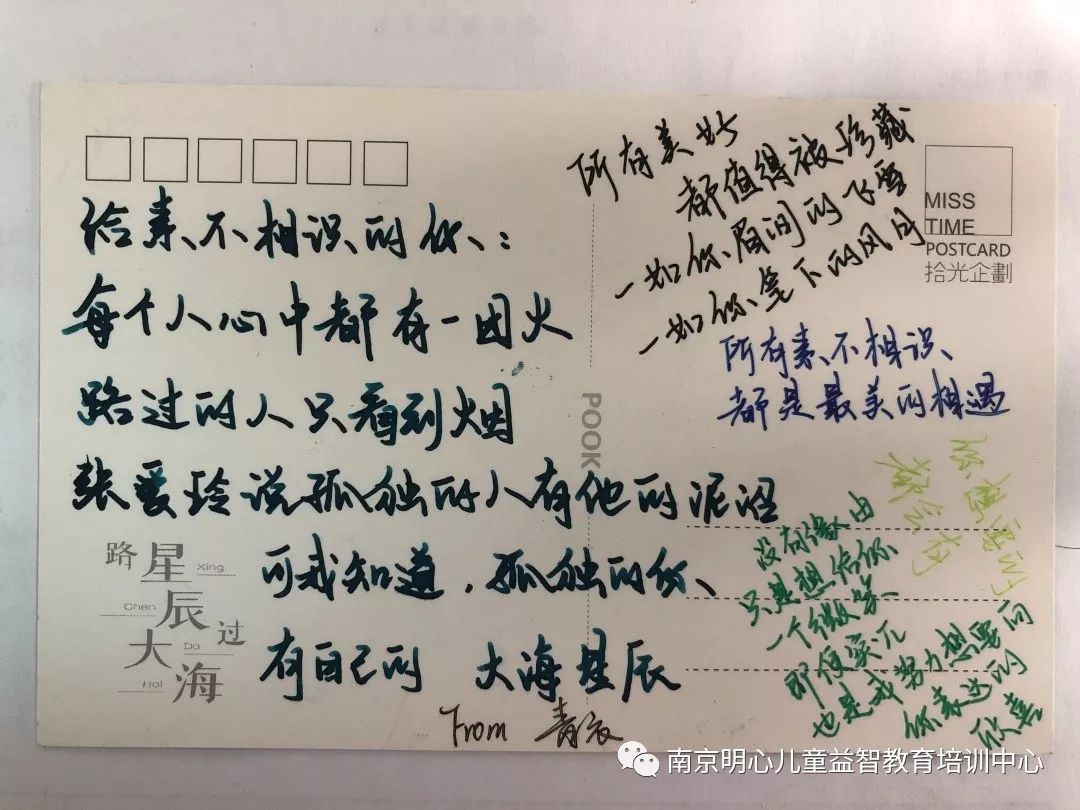 给素不相识的你：
每个人心中都有一团火
路过的人只看到烟
张爱玲说孤独的人有他的泥沼
可我知道，孤独的你、
有自己的 大海星辰
From 青衣
所有美好
都值得被珍藏
一如你眉间的飞雪
一如你笔下的风月
所有素不相识
都是最美的相遇
你想要的
都会有
没有缘由
只是想给你
一个微笑
即便笑
也是我努力想要向
你表达的
欣喜
MISS
TIME
POSTCARD
拾光企劃
POOK
路 星 Xing
Chen 辰
大 Da 过
Hai 海
南京明心儿童益智教育培训中心